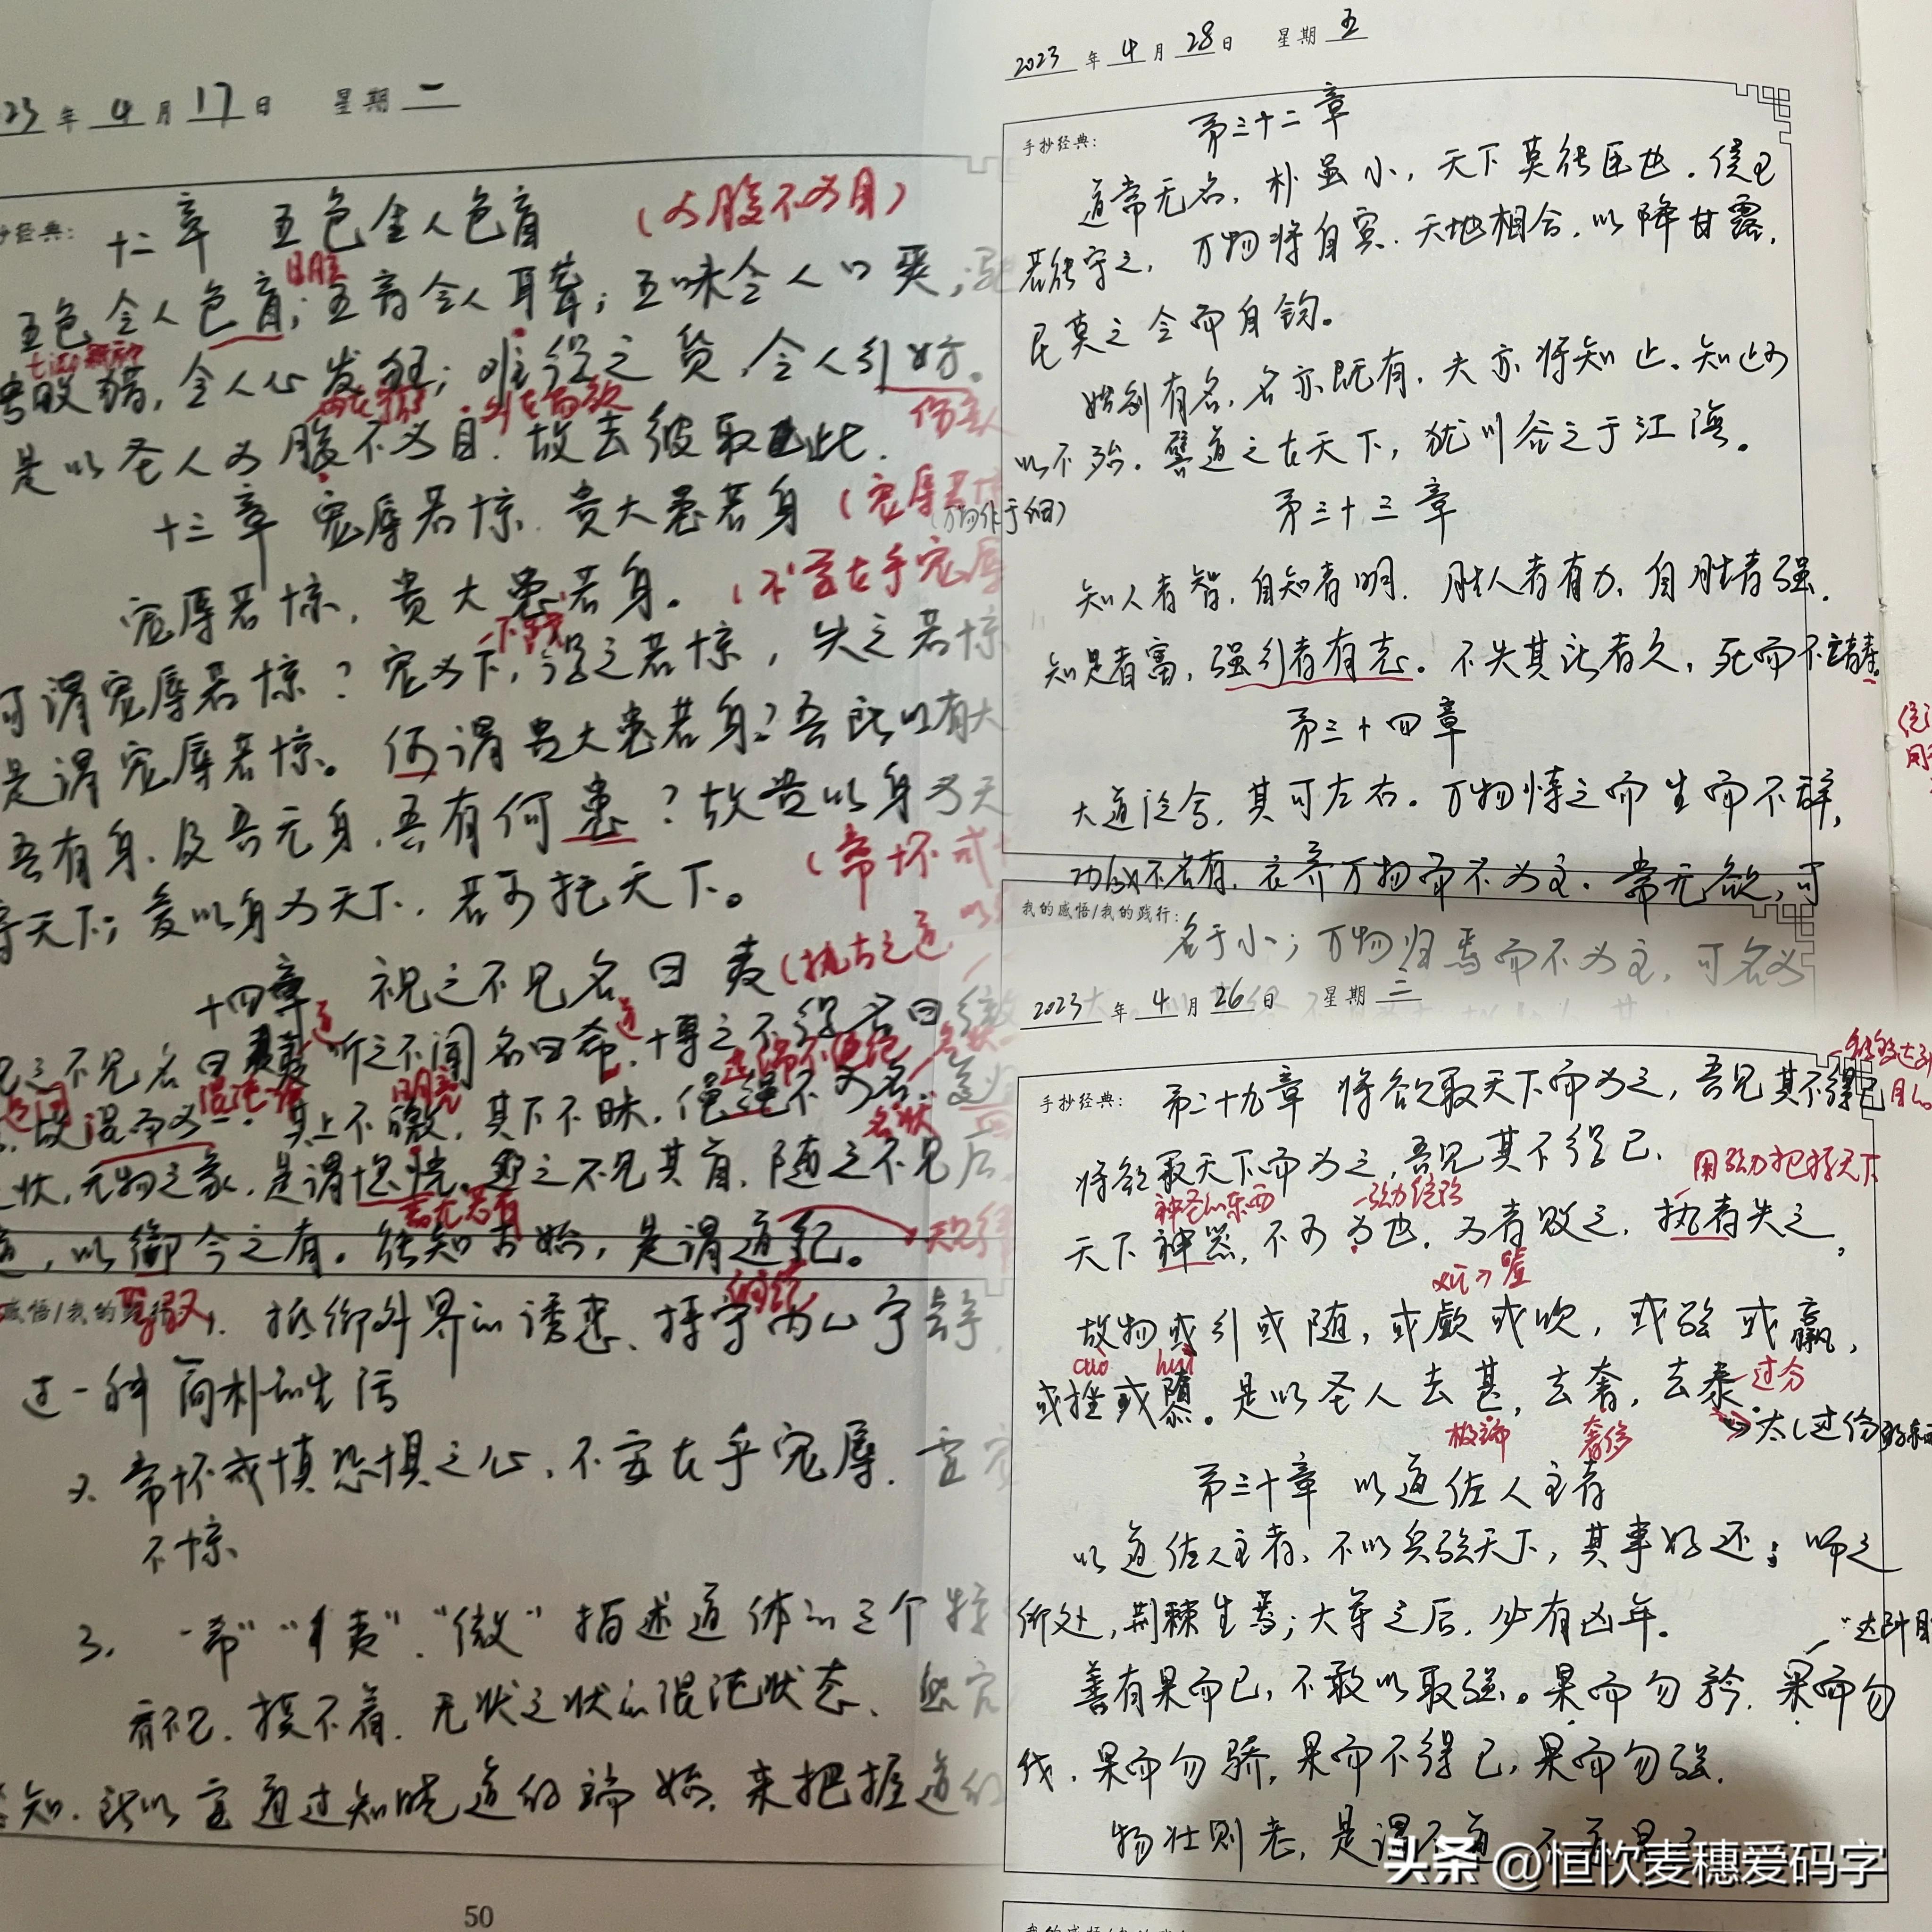 23 年 4 月 17 日 星期 一
抄经典:
十二章 五色令人色盲 (为腹不为目)
五色令人色盲; 五音令人耳聋; 五味令人口爽;
令人心发狂; 难得之货, 令人行妨。
是以圣人为腹不为目. 故去彼取此.
十三章 宠辱若惊. 贵大患若身
宠辱若惊, 贵大患若身。 (不宜在乎宠辱
可谓宠辱若惊? 宠为下, 得之若惊, 失之若惊
是谓宠辱若惊。何谓贵大患若身? 吾所以有大
吾有身. 及吾无身. 吾有何患? 故贵以身为天
寄天下; 爱以身为天下. 若可托天下。 (常怀戒
十四章 视之不见名曰夷 (执古之道
听之不闻名曰希. 搏之不得名曰微
故混而为一. 其上不皦, 其下不昧. 绳绳不可名.
状, 无物之象. 是谓惚恍. 迎之不见其首. 随之不见后
道, 以御今之有。能知古始, 是谓道纪。
感悟/我的践行
抵御外界的诱惑、持守内心宁静.
过一种简朴的生活
2. 常怀戒慎恐惧之心. 不宜在乎宠辱.
不惊
3. "希" "夷". "微" 描述道体的三个特
看不见. 摸不着. 无状之状的混沌状态.
知. 所以宜通过知晓道的端始. 来把握道的
50
2023 年 4 月 28 日 星期 五
手抄经典:
第三十二章
道常无名, 朴虽小, 天下莫能臣也. 侯王
若能守之, 万物将自宾. 天地相合. 以降甘露,
民莫之令而自钧。
始制有名, 名亦既有, 夫亦将知止. 知止可
以不殆. 譬道之在天下, 犹川谷之于江海。
第三十三章
知人者智, 自知者明. 胜人者有力, 自胜者强.
知足者富, 强行者有志。不失其所者久, 死而不亡者寿。
第三十四章
大道泛兮, 其可左右。万物恃之而生而不辞,
功成不名有. 衣养万物而不为主. 常无欲, 可
我的感悟/我的践行:
名于小; 万物归焉而不为主, 可名为
2023 年 4 月 26 日 星期 三
手抄经典:
第二十九章 将欲取天下而为之, 吾见其不得已
将欲取天下而为之, 吾见其不得已.
用强力把持天下
神圣的东西
天下神器, 不可为也. 为者败之. 执者失之,
故物或行或随, 或歔或吹, 或强或羸,
cuò huī
或挫或隳。是以圣人去甚, 去奢, 去泰.
过分
极端 奢侈
第三十章 以道佐人主者
以道佐人主者, 不以兵强天下, 其事好还; 师之
所处, 荆棘生焉; 大军之后, 必有凶年。
善有果而已, 不敢以取强。果而勿矜. 果而勿
伐. 果而勿骄, 果而不得已, 果而勿强.
物壮则老, 是谓不道
头条 @恒忺麦穗爱码字